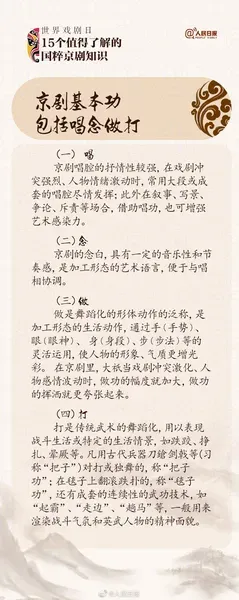 世界戏剧日
@人民日报
15个值得了解的
国粹京剧知识
京剧基本功
包括唱念做打
（一） 唱
京剧唱腔的抒情性较强，在戏剧冲
突强烈、人物情绪激动时，常用大段或成
套的唱腔尽情发挥；此外在叙事、写景、
争论、斥责等场合，借助唱功，也可增强
艺术感染力。
（二）念
京剧的念白，具有一定的音乐性和节
奏感，是加工形态的艺术语言，便于与唱
相协调。
（三）做
做是舞蹈化的形体动作的泛称，是
加工形态的生活动作，通过手（手势）、
眼（眼神）、身（身段）、步（步法）等的
灵活运用，使人物的形象、气质更增光
彩。在京剧里，大抵当戏剧冲突激化、人
物感情波动时，做功的幅度就加大，做功
的挥洒就更夸张起来。
（四）打
打是传统武术的舞蹈化，用以表现
战斗生活或特定的生活情景，如跌跤、挣
扎、晕厥等。凡用古代兵器刀鎗剑戟等（习
称“把子”）对打或独舞的，称“把子
功”；在毯子上翻滚跌扑的，称“毯子
功”，还有成套的连续性的武功技术，如
“起霸”、“走边”、“趟马”等，一般用来
渲染战斗气氛和英武人物的精神面貌。
@人民日报